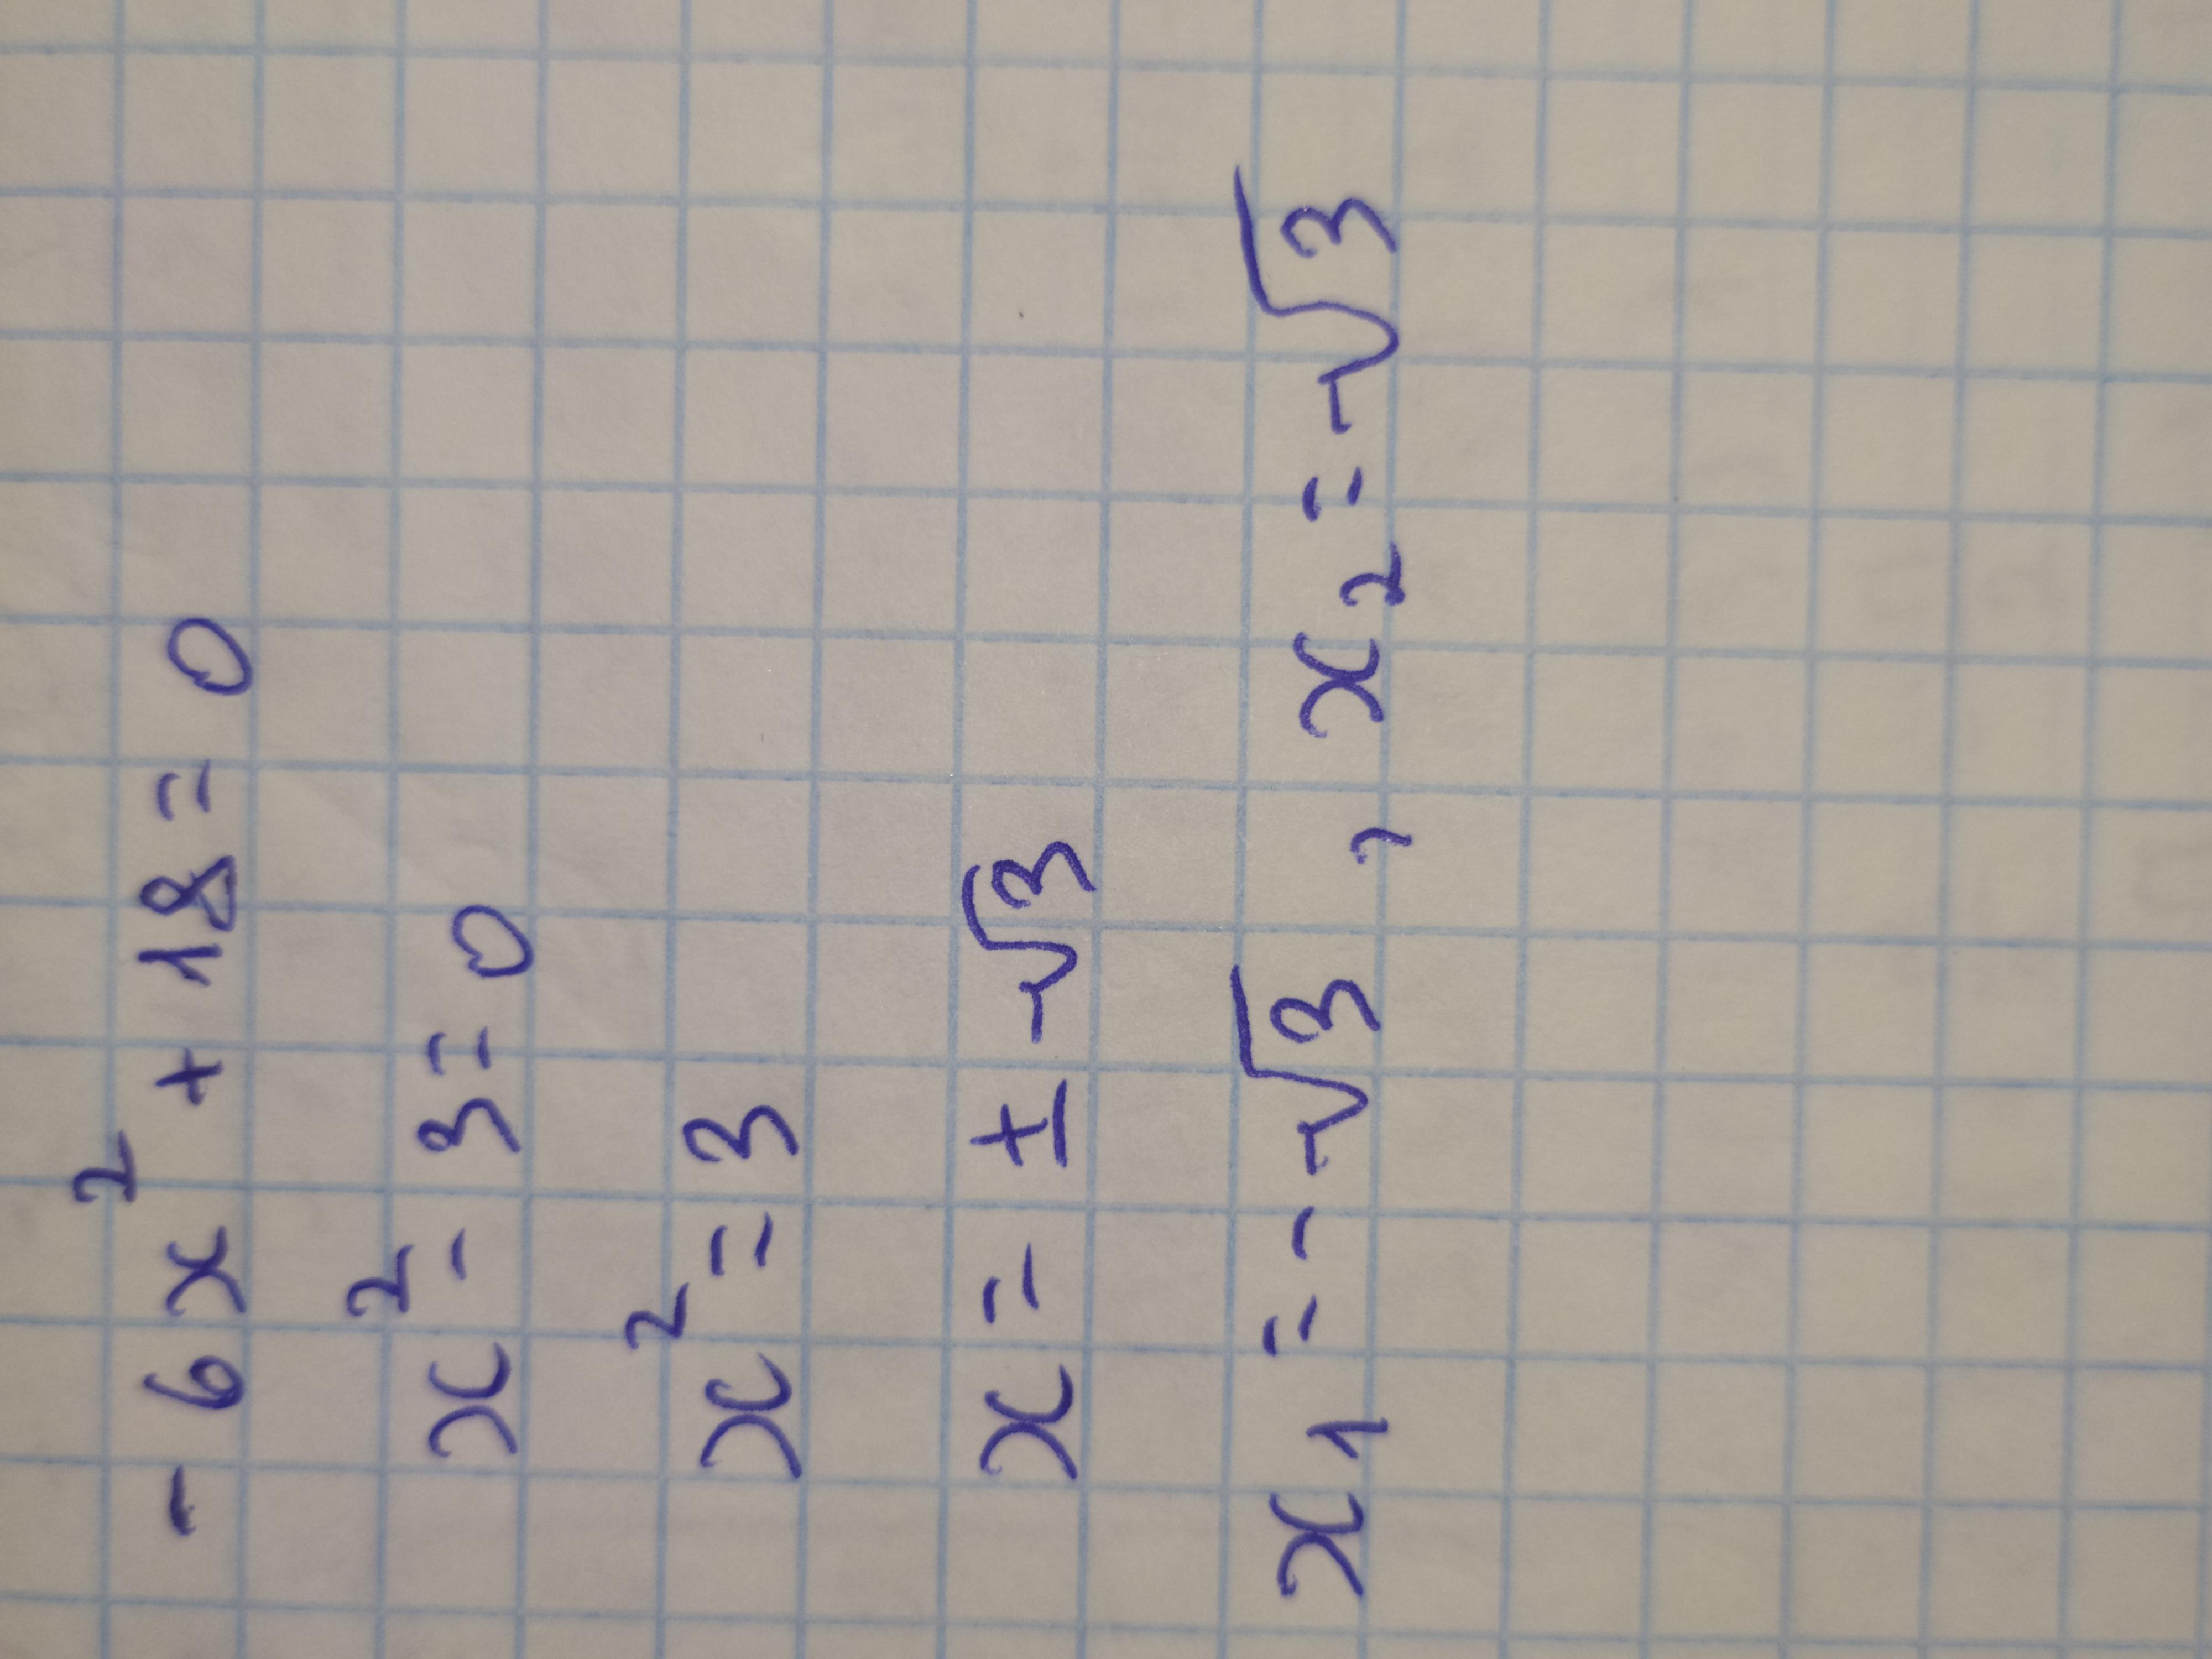 - 6x² + 18 = 0
x² - 3 = 0
x² = 3
x = ± √3
x₁ = - √3 , x₂ = √3